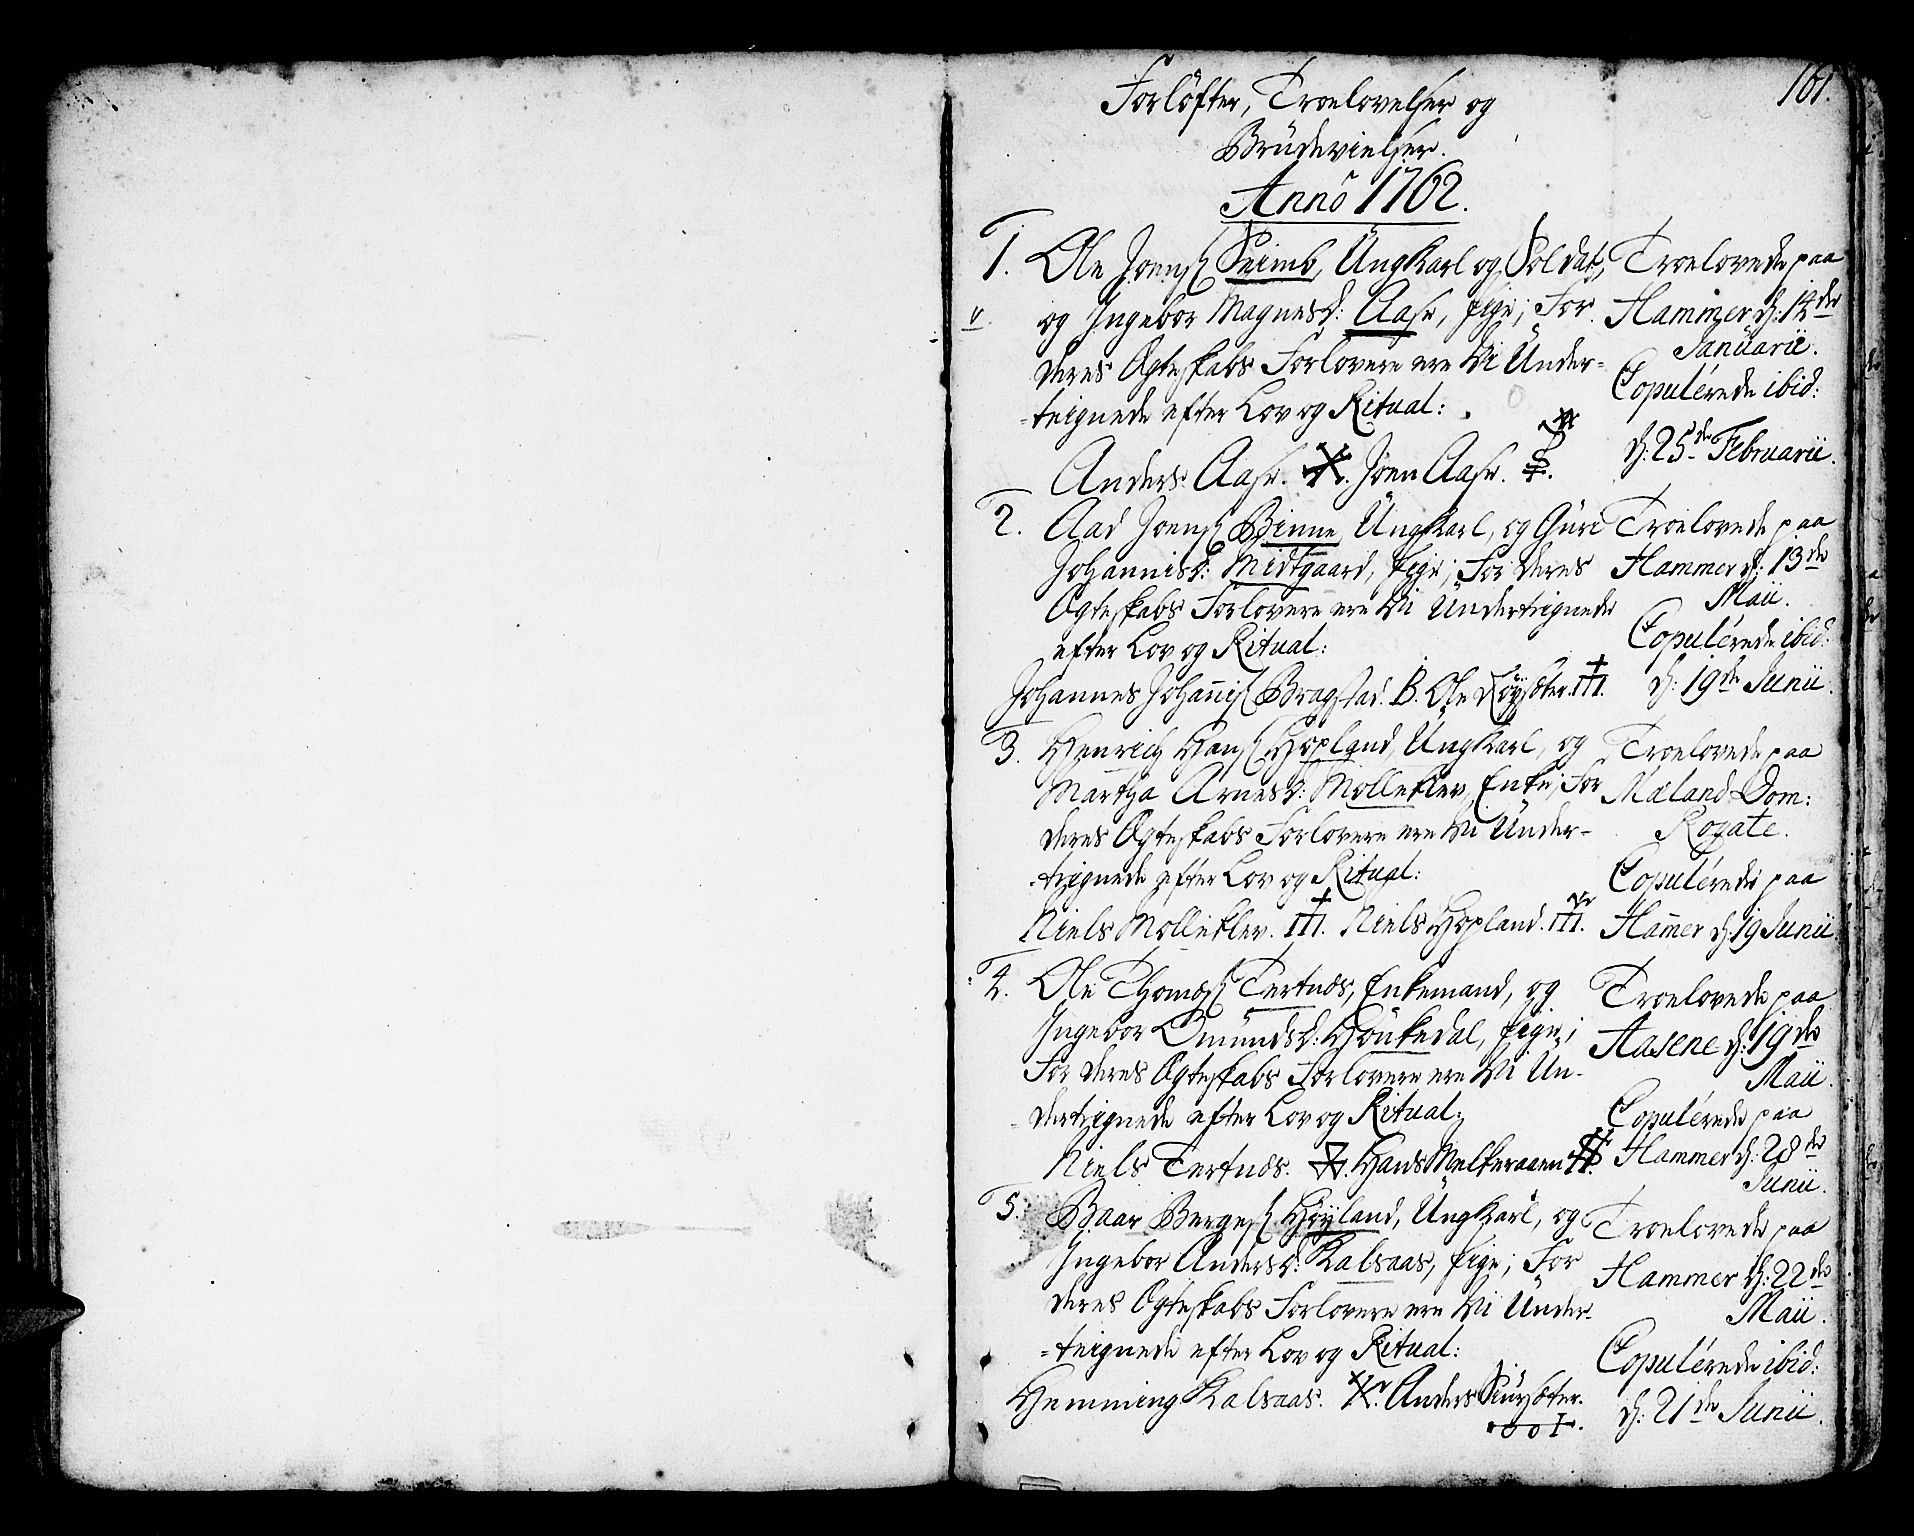 161.
Forløfter, Troelovelser og
Brüdevielser.
Anno 1762.
1. Ole Joens. Seimb, Ungkarl og Soldat,
og Ingebor Magnesd: Aase, pige; For
deres Ægteskabs Forlovere ere Vi Under-
-teignede efter Lov og Ritual:
Anders Aase. Joen Aase.
Troelovede paa
Hammer d: 14de
Januarii.
Copulérede ibid:
d: 25de Februarii.
2. Aad Joens. Binne, Ungkarl, og Güri
Johannisd: Midtgaard, pige; For deres
Ægteskabs Forlovere ere Vi Underteignede
efter Lov og Ritual:
Johannes Johannis. Bragstad. B. Ole
Troelovede paa
Hammer d: 13de
Maii.
Copulérede ibid:
d: 19de Junii.
3. Henrich Hans. Hopland, Ungkarl, og
Martha Arnesd: Molleklev, Enke; For
deres Ægteskabs Forlovere ere Vi Under-
-teignede efter Lov og Ritual:
Niels Molleklev. Niels Hopland.
Troelovede paa
Mæland Dom:
Rogate.
Copulérede paa
Hamer d: 19 Junii.
4. Ole Thomæs. Tertnæs, Enkemand, og
Ingebor Omundsd: Houkedal, pige;
For deres Ægteskabs Forlovere ere Vi Un-
-derteignede efter Lov og Ritual:
Niels Tertnæs. Hans Melkeraaen
Troelovede paa
Aasene d: 19de
Maii.
Copulérede paa
Hammer d: 28de
Junii.
5. Baar Berges. Høyland, Ungkarl, og
Ingebor Andersd: Kalsaas, pige; For
deres Ægteskabs Forlovere ere Vi Under-
-teignede efter Lov og Ritual:
Hemming Kalsaas. Anders
Troelovede paa
Hammer d: 22de
Maii.
Copulérede ibid:
d: 21de Junii.